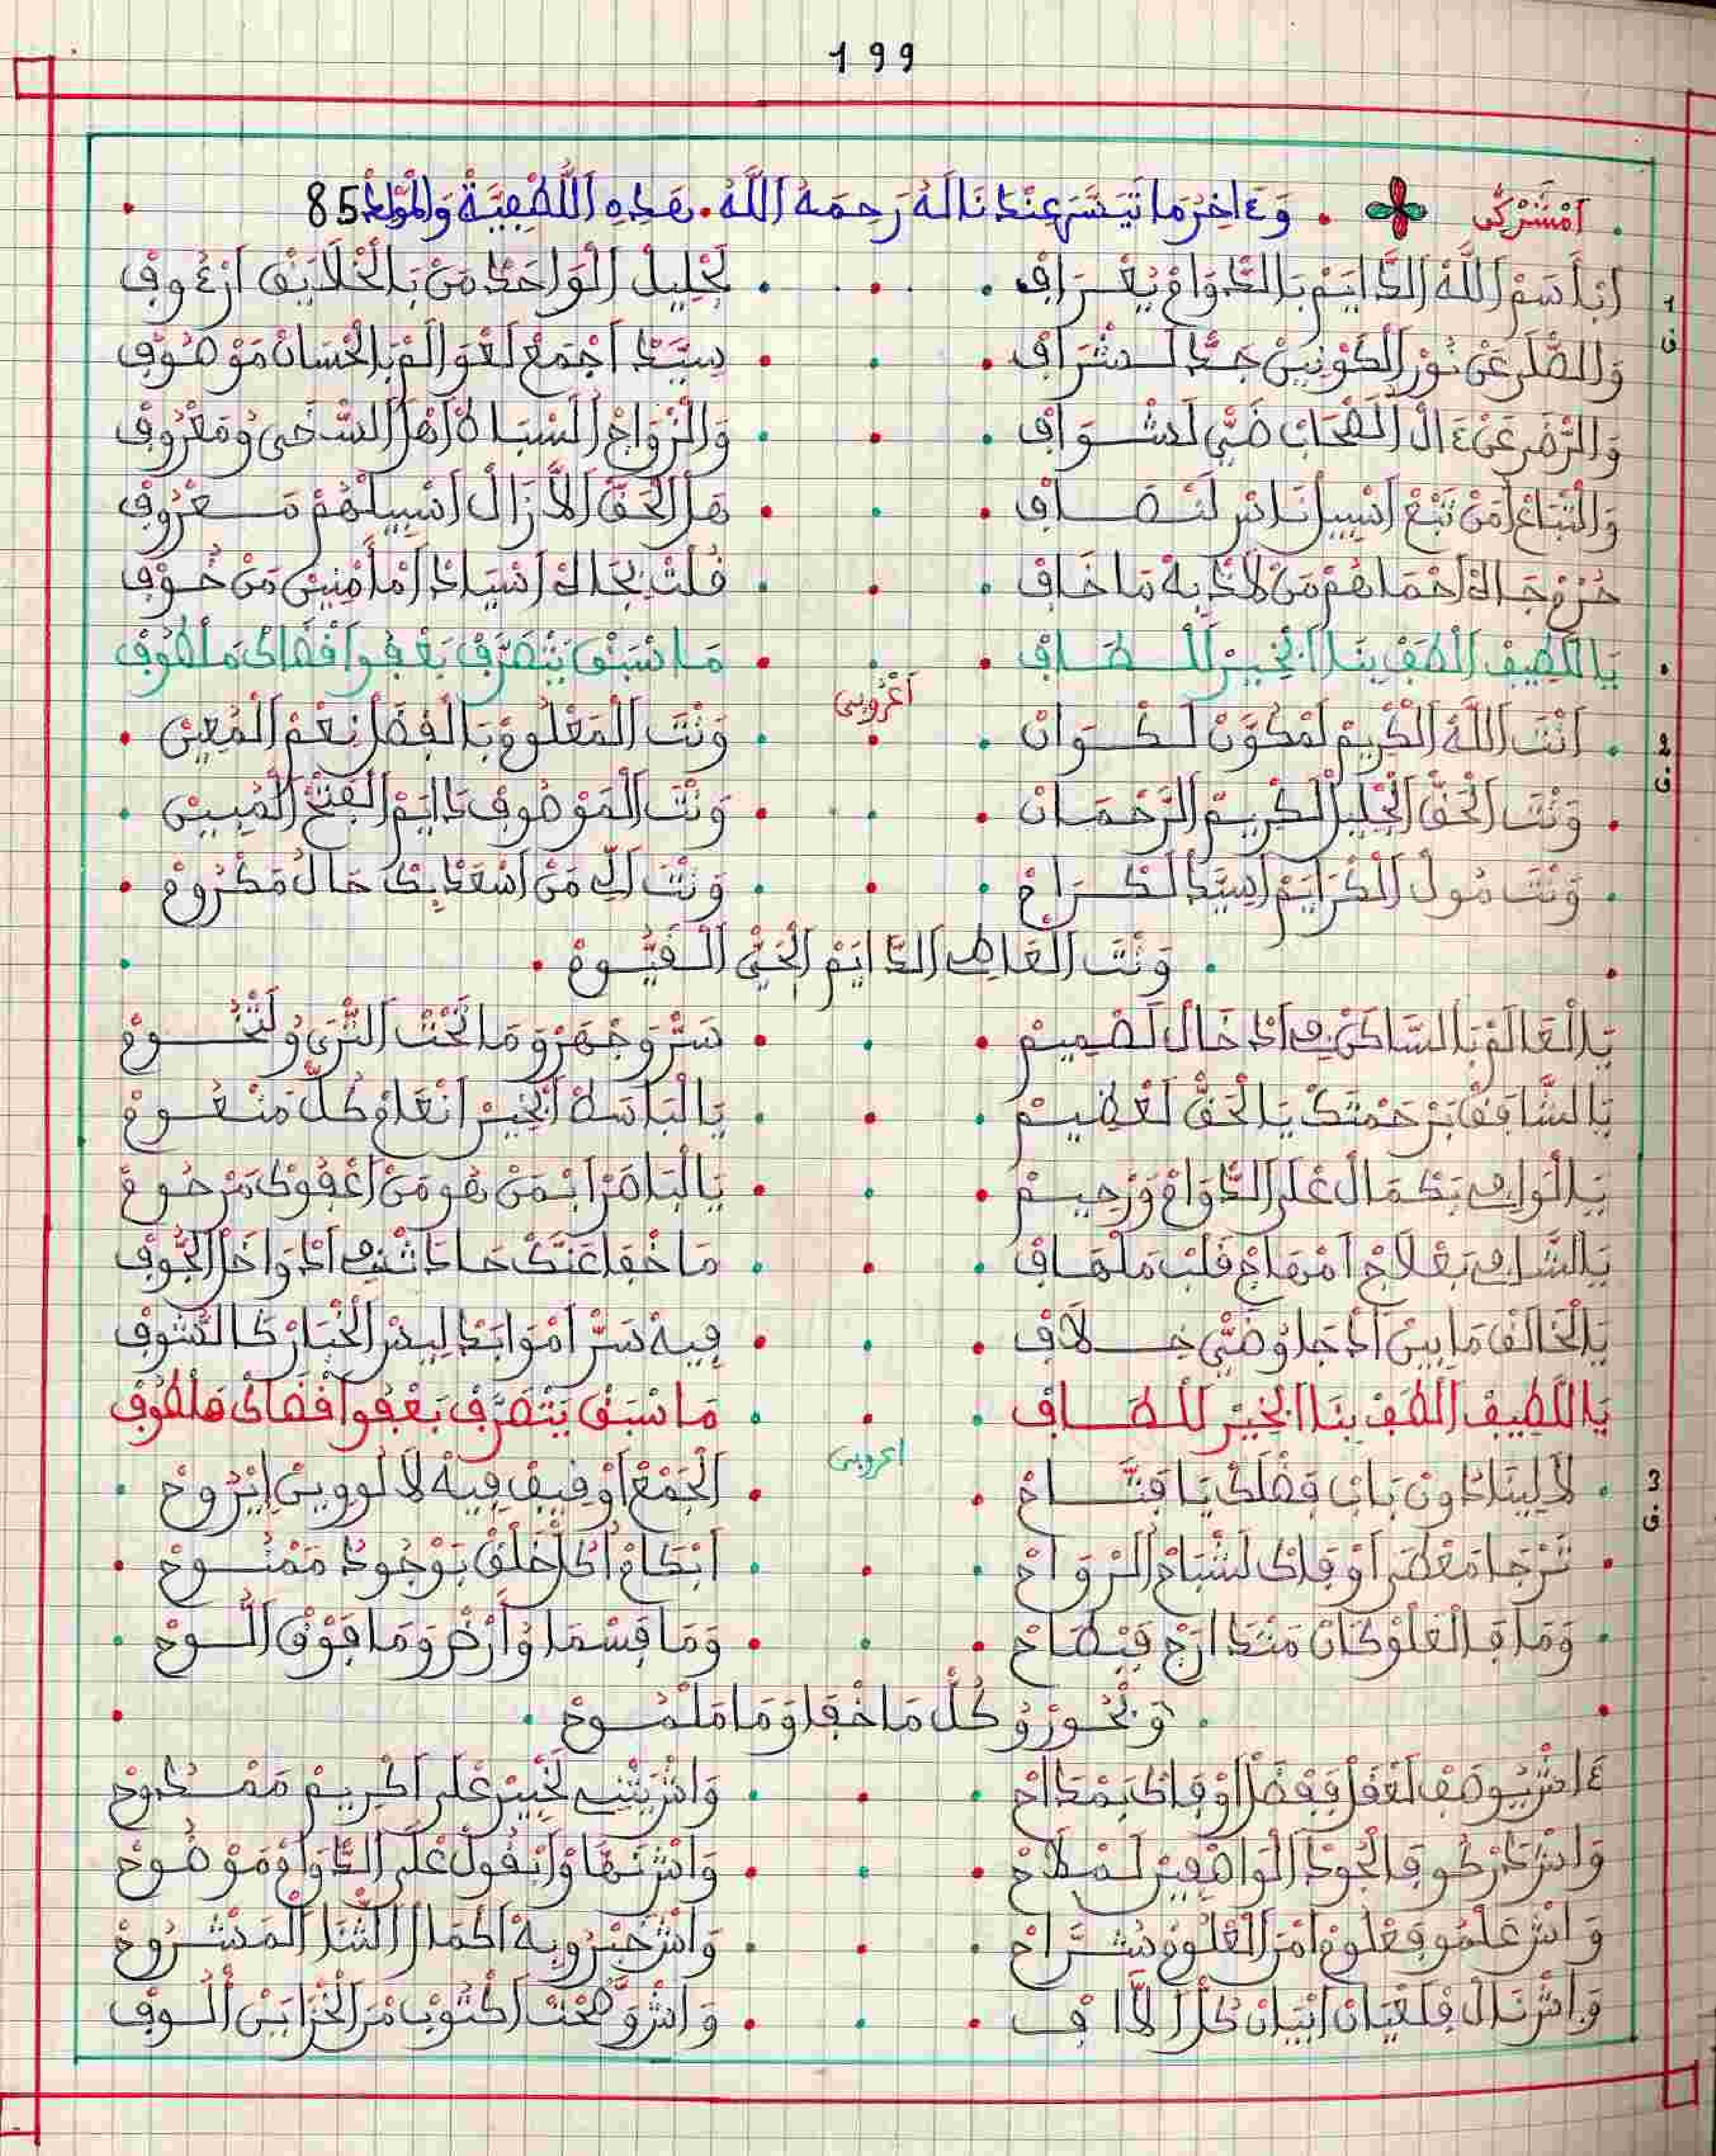 199
أمشركى . وءاخر ما تيسر عندنا له رحمه الله . هذه اللطفية والمولى 85
1 ف
ابأسم الله الدايم بالدوام يعراف لجليل الواحد من بالخلايق ارءوف
والصلى عن نور الكونين جد لشراف سيد اجمع لعوالم بالحسان موصوف
والرضى عن ءال الصحاب ضي لشواف والزواج السباه اهل السخى ومعروف
والتباع من تبع اسبيل ناس لنصاف هل الحق الا زال اسبيلهم معروف
حزم جاه احماهم من لاذ به ما خاف قلت بجاه اسياد امامنين من خوف
يا اللطيف الطف بنا الخبير للطاف ما سبق يتصرف بعفو افضاك ملطوف
اعروبى
2 ف
انت الله الكريم لمكون لكوان ونت المعلوم بالفضل نعم المعين
ونت الحق الجليل الكريم الرحمان ونت الموصوف دايم الفتح المبين
ونت مول الكرايم اسيد لكرام ونت الي من اسعد بك حال مكروم
ونت العاطي الدايم الحي القيوم
يا العالم بالساكن في ادخال لصميم سر وجهر وما تحت الثرى ولتخوم
يا الشافق برحمتك يا الحق لعظيم يا الباسط الخير انعام كل منعوم
يا الوافي بكمال على الدوام ورحيم يا الباصر ابمن هو من اعفوك مرحوم
يا الشافي بعلاج امهاج قلب ملهاف ما خفا عنك حادث في ادواخل الجوف
يا الخالق ما بين ادجا وضي خلاف فيه سر اموابد ليس الخبار كالشوف
يا اللطيف الطف بنا الخبير للطاف ما سبق يتصرف بعفو افضاك ملطوف
اعروبى
3 ف
لا لينا دون باب فضلك يا فتاح الجمع اوقيف فيه لا لووين ايروح
نرجا معطى اوفاك لشباح الروح ابكام اكل خلق بوجود ممنوح
وما ف العلو كان منداج فبطاح وما فسما وارض وما فوق اللوح
وبحور وكل ما خفا وما ملموح
ءاش يوصف لعقل ففضل اوفاك بمداح واش يثني لخبير على اكريم ممدوح
واش دركو فالجود الواصفين لملاح واش نها وايقول على الدوام موضوح
واش علمو فعلوم امر العلوم شراح واش خبرو به اكمال الثنا المشروح
واش نال فلعيان ابيان كل لاف واش وضحت اكتوب من الخزاين ألوف